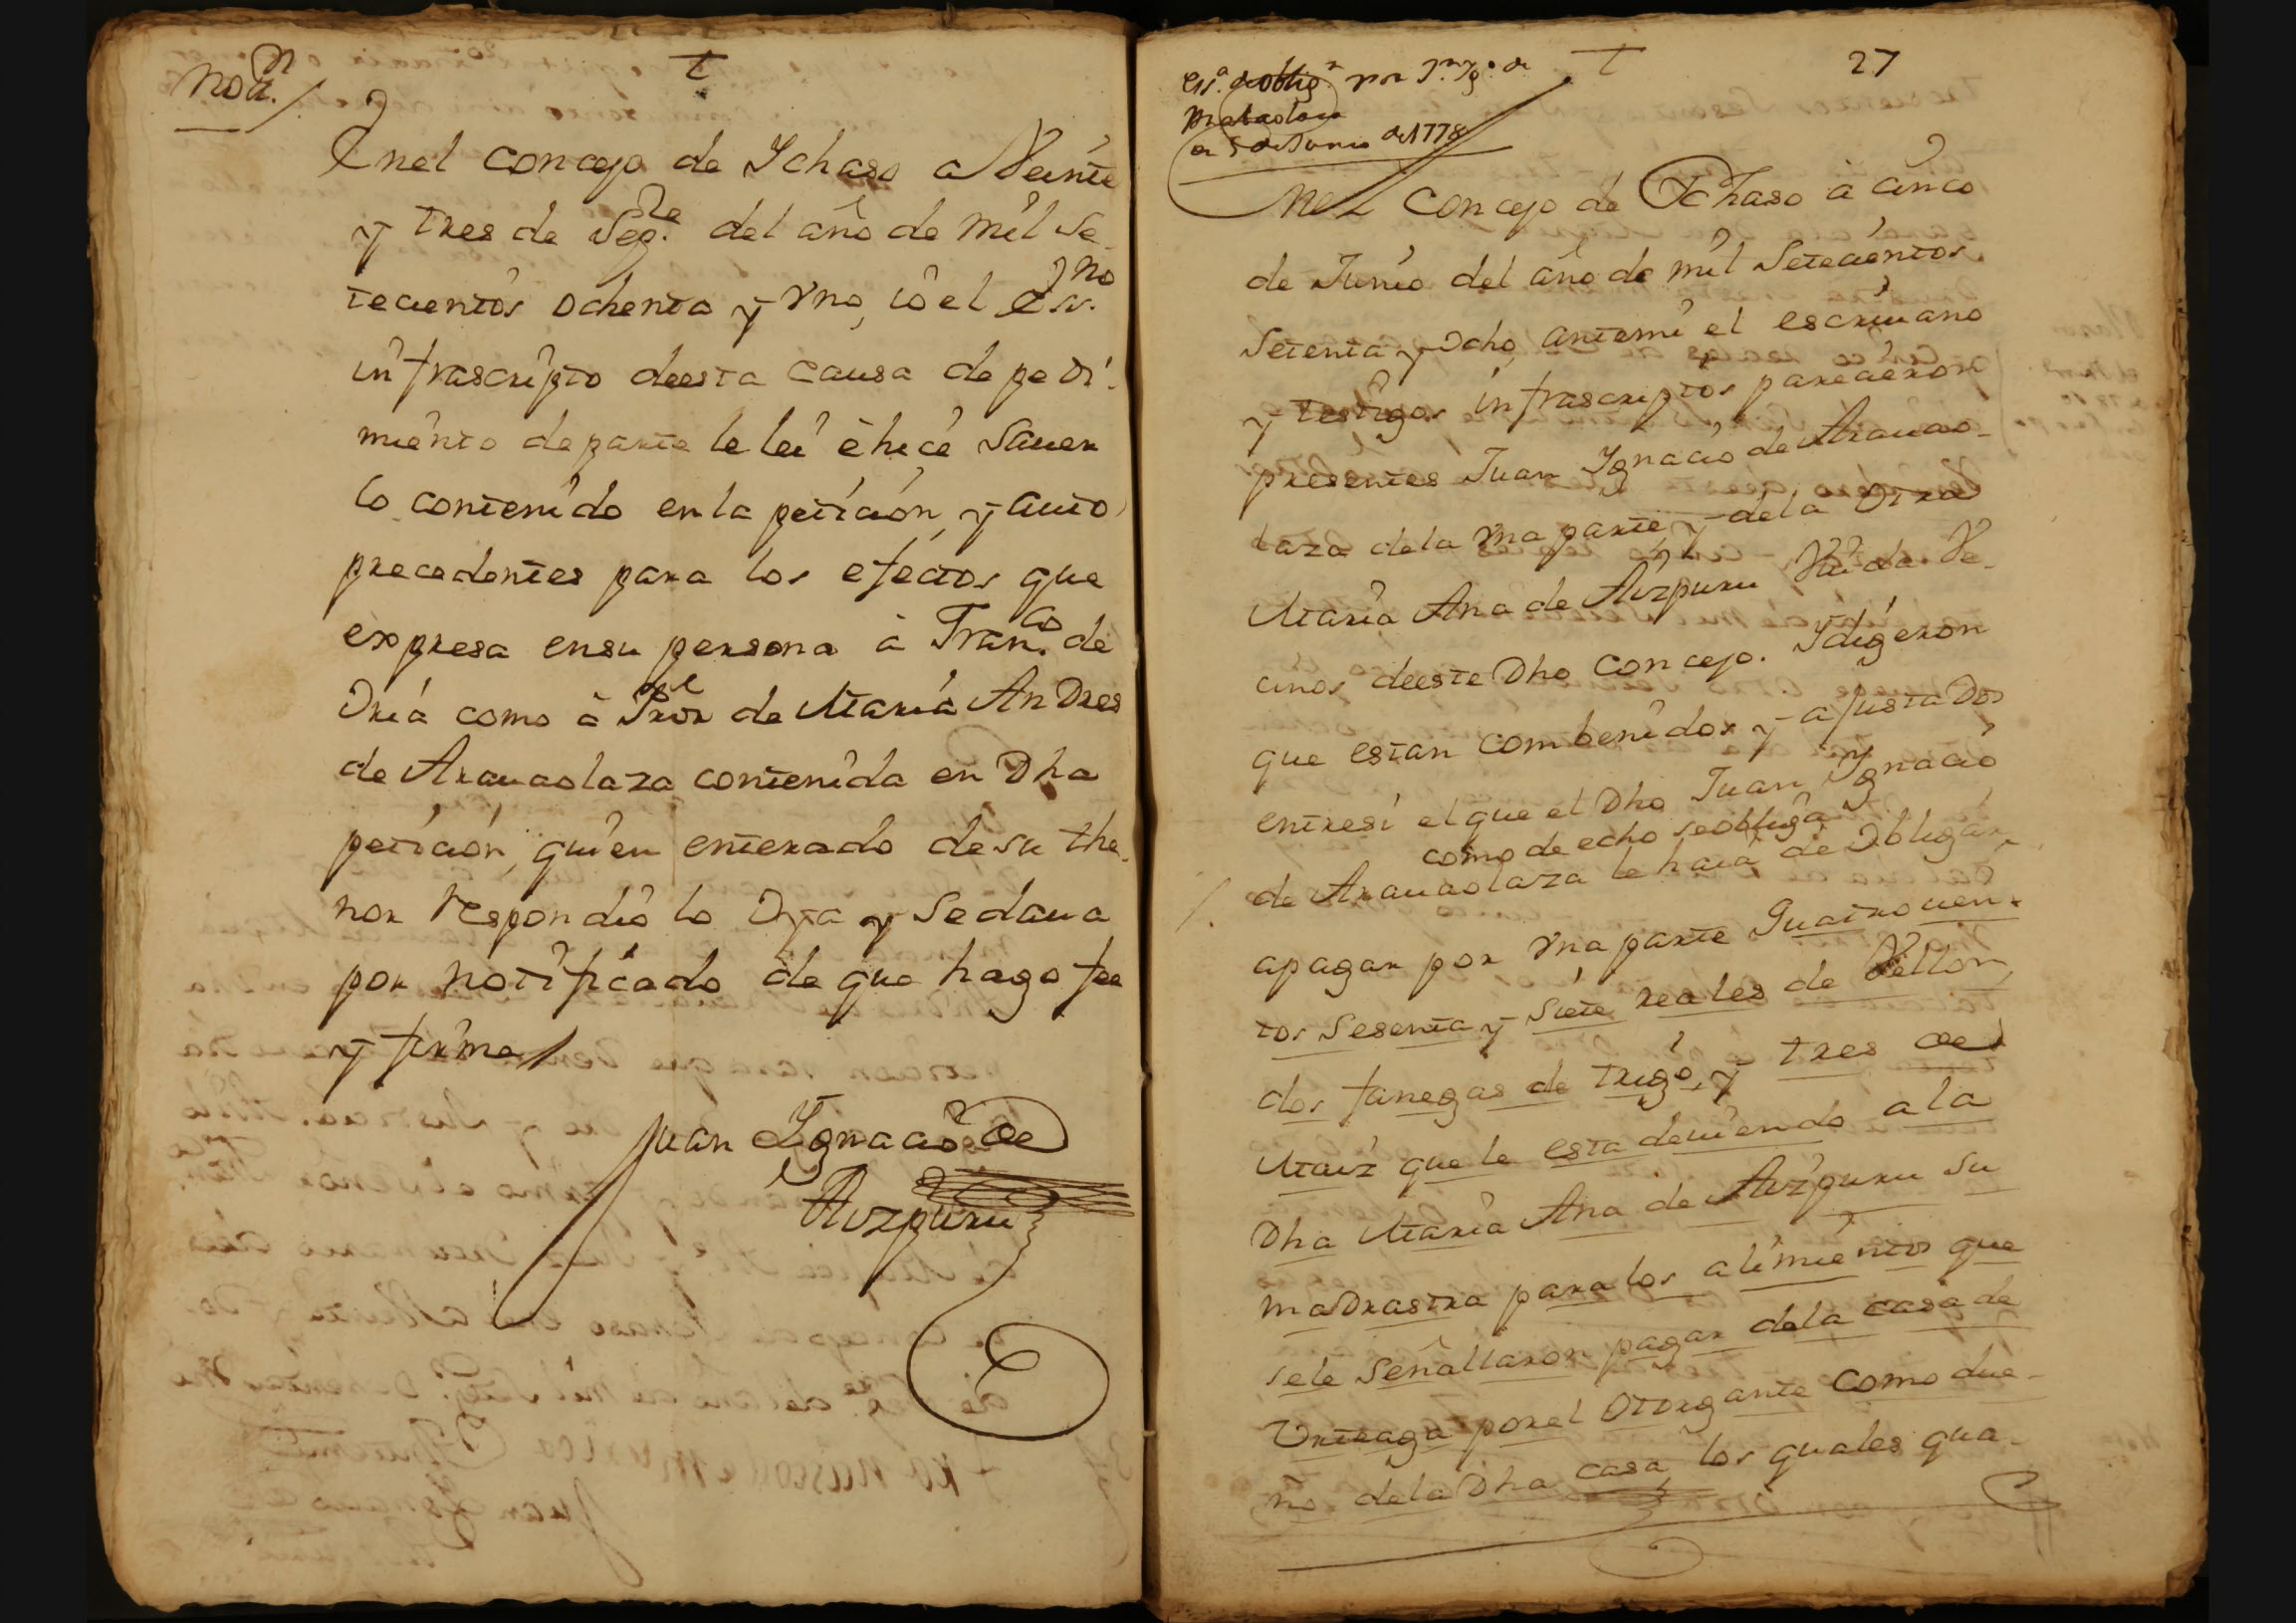 Noⁿ.
t
Enel concejo de Ychaso a Veinte
y tres de Sepᵣₑ. del año de mil Se-
tecientos ochenta y vno, io el Essⁿᵒ.
infrascripto deesta causa de pedi-
miento de parte le lei è hice Sauer
lo contenido en la peticion, y auto
precedentes para los efectos que
expresa ensu persona à Franᶜᵒ. de
Vria como à Pror de Maria Andres
de Arauaolaza contenida en Dha
peticion, quien enterado de su the-
nor respondio lo Oya y Sedaua
por notificado de que hago fee
y firme
Juan Ygnacio de
Aizpuru
t
27
Essᵃ. de obligⁿ por Jⁿ Ygᵒ. de
a 5 de Junio de 1778
Nel Concejo de Ychaso à cinco
de Junio del año de mil Setecientos
Setenta y Ocho, antemi el escriuano
y testigos infrascriptos parecieron
presentes Juan Ygnacio de Arauao-
laza dela vna parte, y dela Otra
Maria Ana de Aizpuru Viuda Ve-
cinos deeste Dho Concejo. Ydigeron
que estan combenidos y ajustados
entresi el que el Dho Juan Ygnacio
como de echo seobliga
de Arauaolaza le haia de Obligar,
apagar por vna parte Quatrocien-
tos Sesenta y Siete reales de Vellon,
dos fanegas de trigo, y tres de
Maiz que le esta deuiendo ala
Dha Maria Ana de Aizpuru su
madrastra para los alimientos que
sele Señallaron pagar dela casa de
Vrteaga porel Otorgante Como due-
ño dela Dha casa, los quales qua-